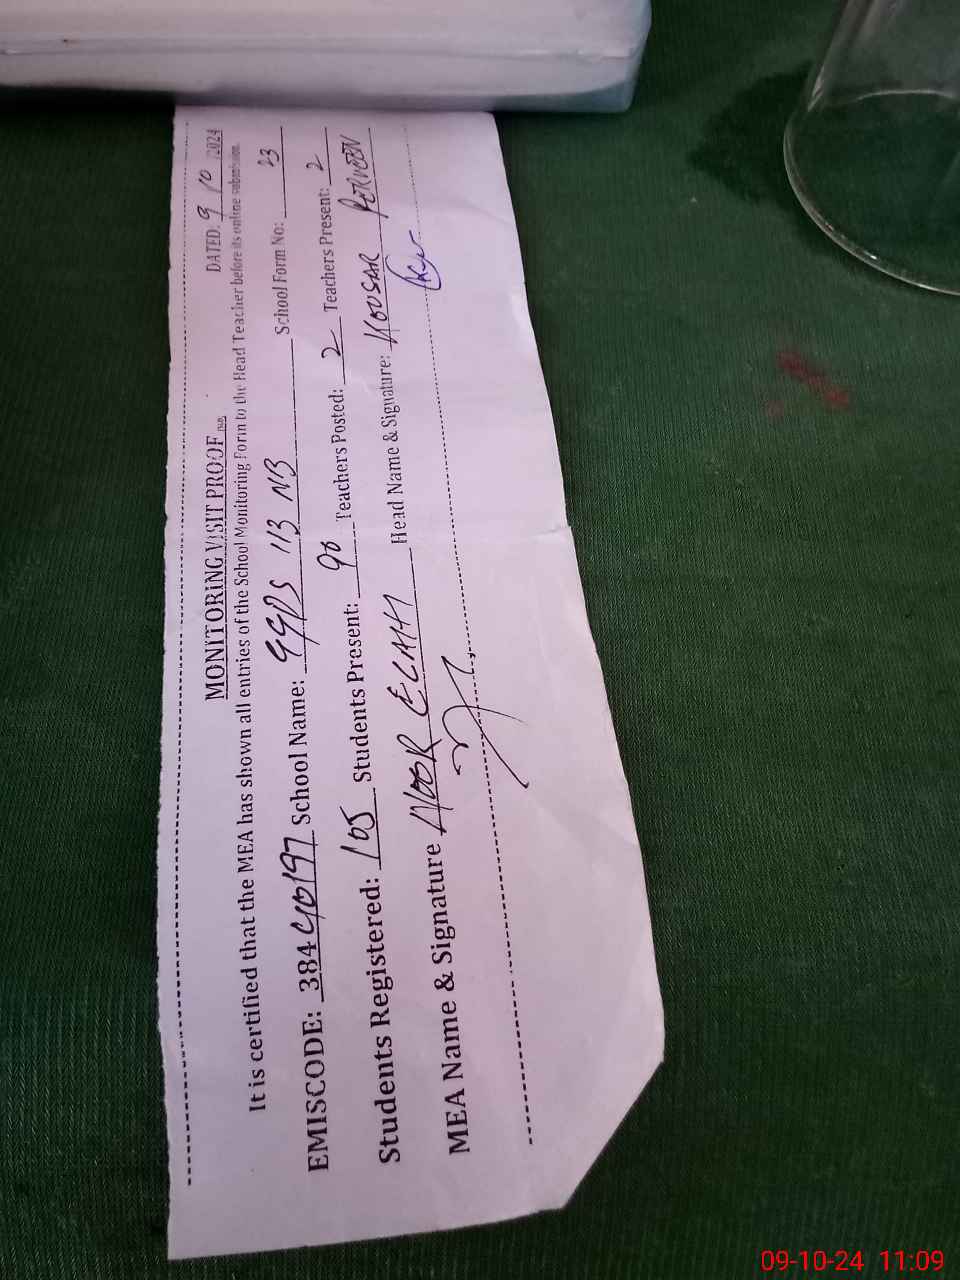 MONITORING VISIT PROOF DATED: 9/10/2024
It is certified that the MEA has shown all entries of the School Monitoring Form to the Head Teacher before its online submission.
EMISCODE: 38440197 School Name: GGPS 113 NB School Form No: 23
Students Registered: 105 Students Present: 90 Teachers Posted: 2 Teachers Present: 2
MEA Name & Signature NOOR ELAHI Head Name & Signature: KOUSAR PERVEEN
09-10-24 11:09